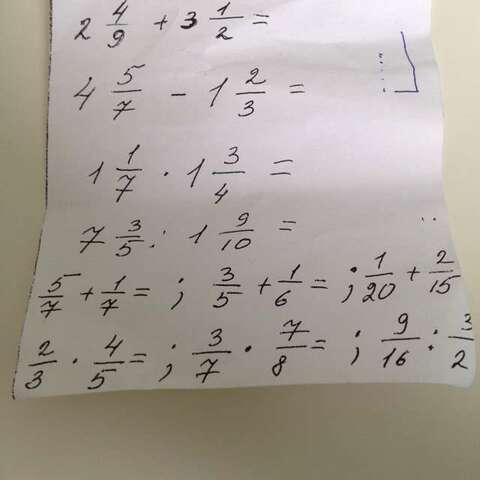 2 4/9 + 3 1/2 =
4 5/7 - 1 2/3 =
1 1/7 · 1 3/4 =
7 3/5 : 1 9/10 =
5/7 + 1/7 = ; 3/5 + 1/6 = ; 1/20 + 2/15
2/3 · 4/5 = ; 3/7 · 7/8 = ; 9/16 : 3/2